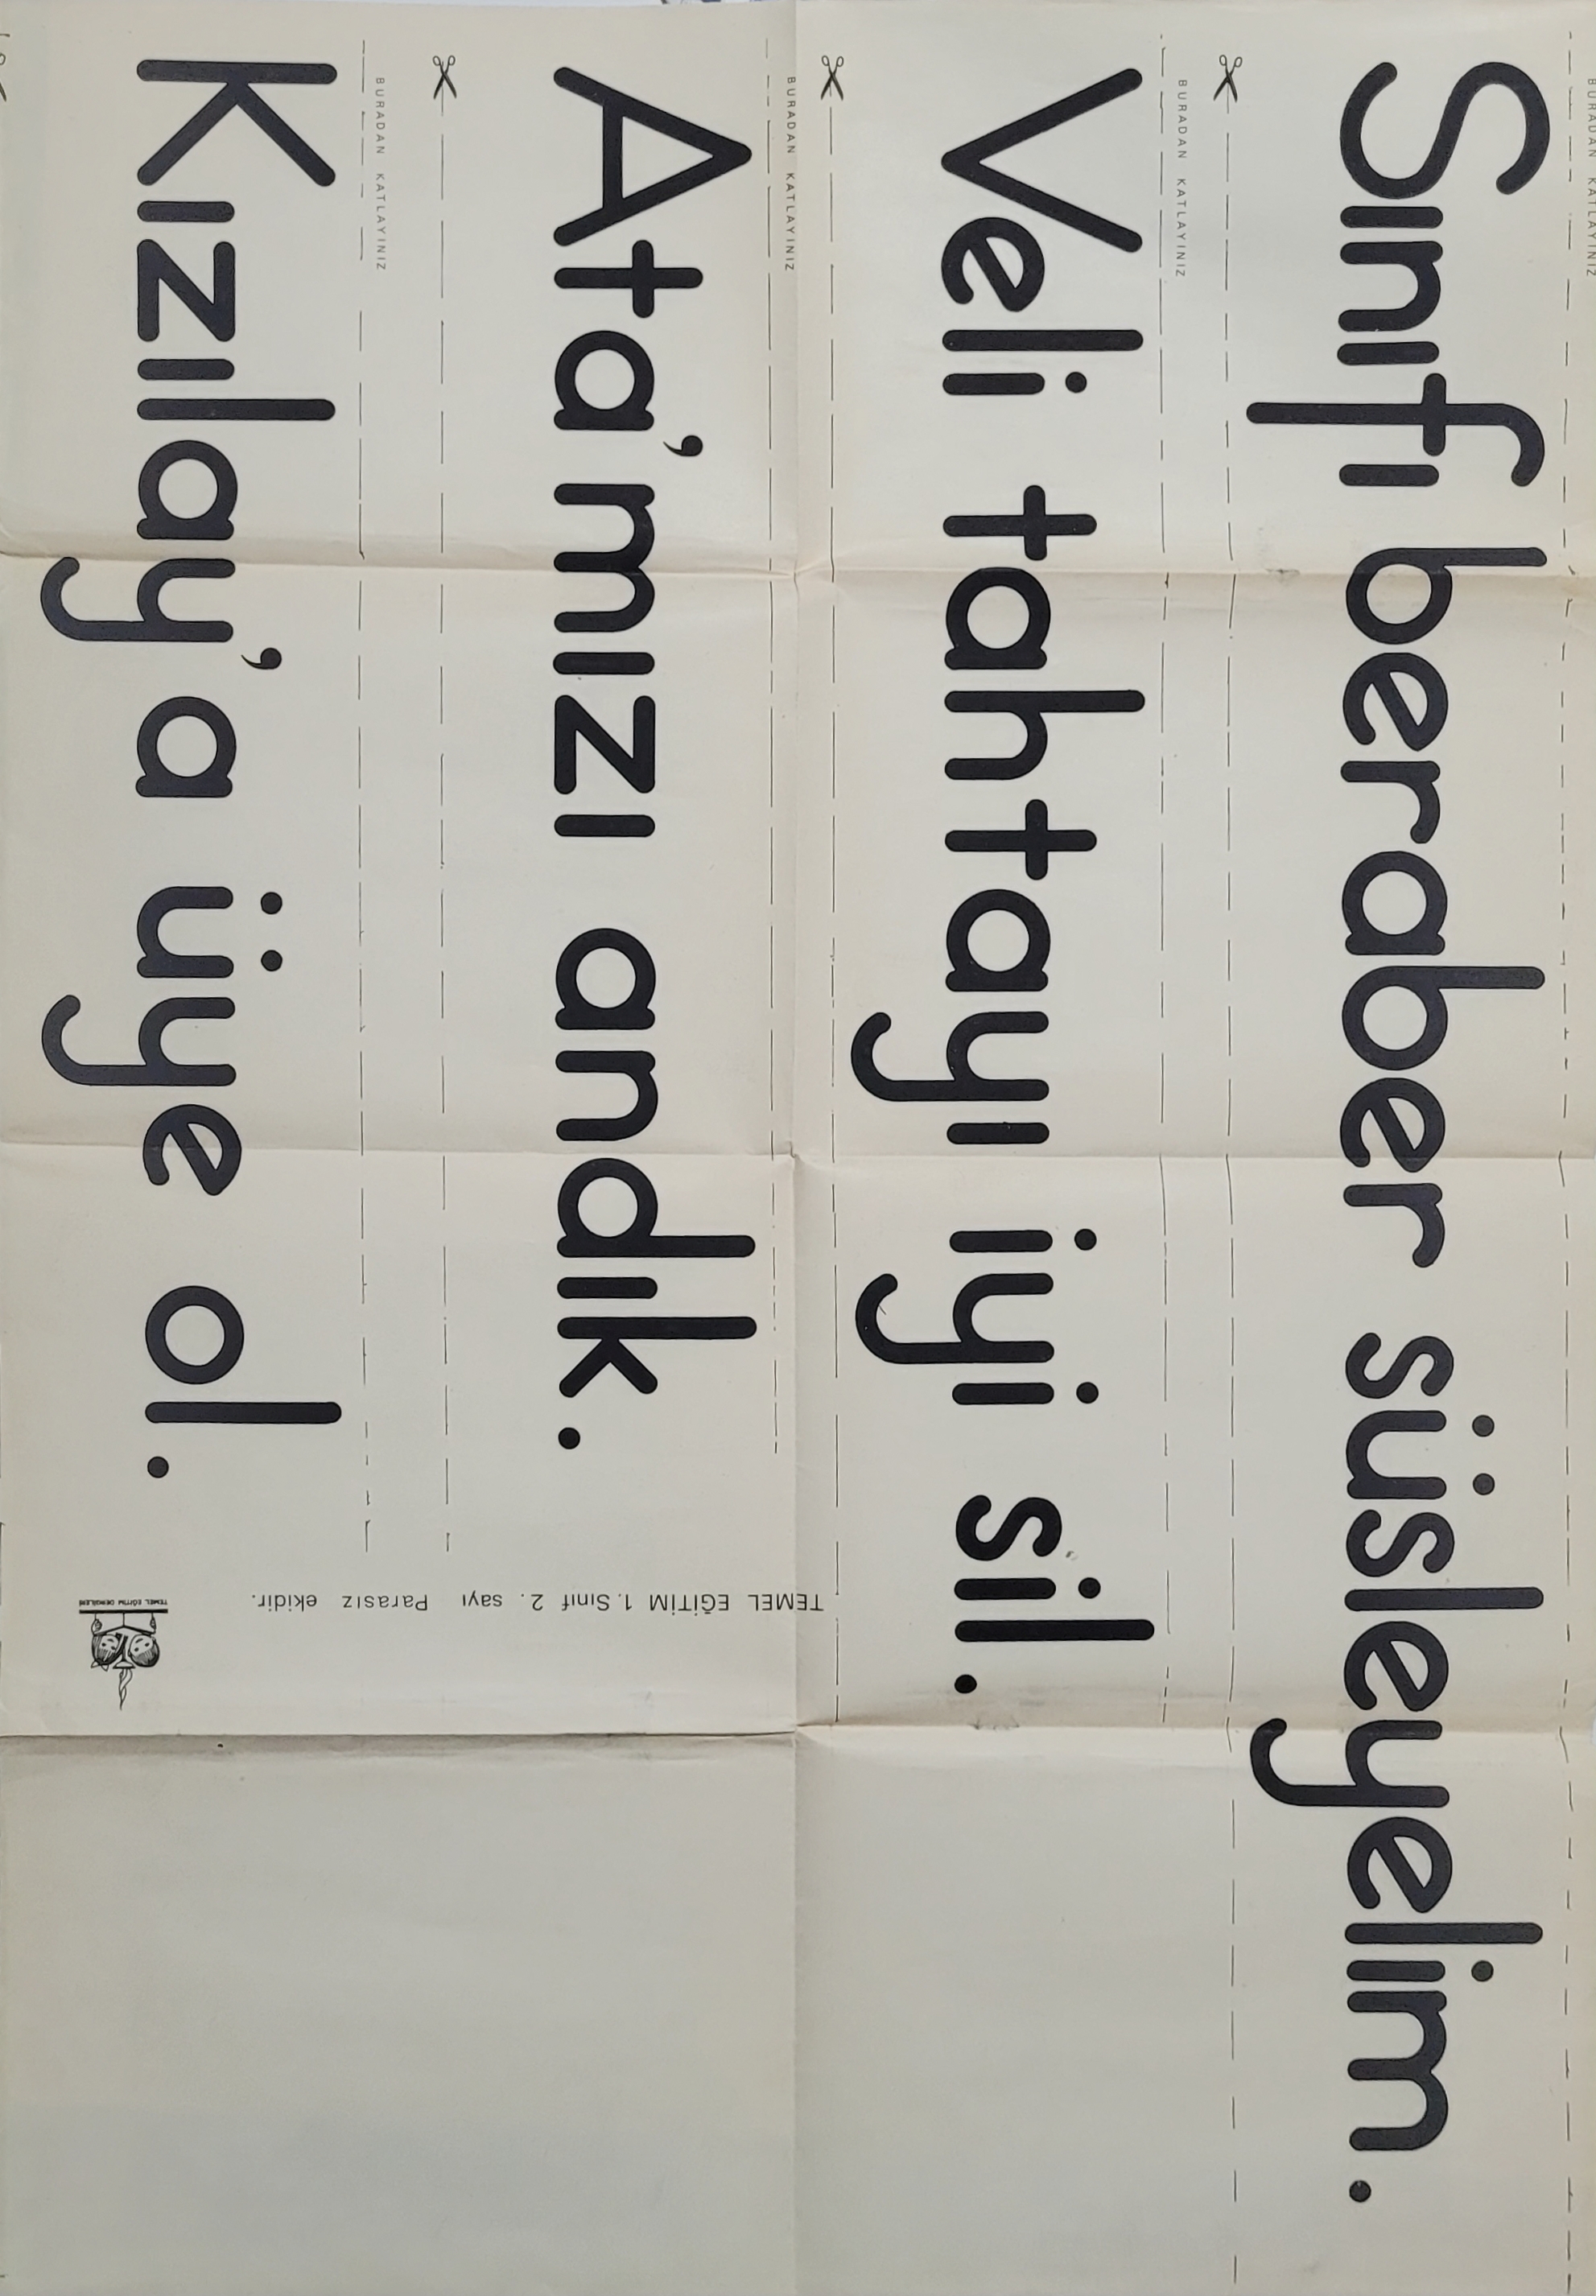 BURADAN KATLAYINIZ
Sınıfı beraber süsleyelim.
BURADAN KATLAYINIZ
Veli tahtayı iyi sil.
BURADAN KATLAYINIZ
Ata'mızı andık.
BURADAN KATLAYINIZ
Kızılay'a üye ol.
TEMEL EĞİTİM 1. Sınıf 2. sayı Parasız ekidir.
TEMEL EĞİTİM DERGİLERİ